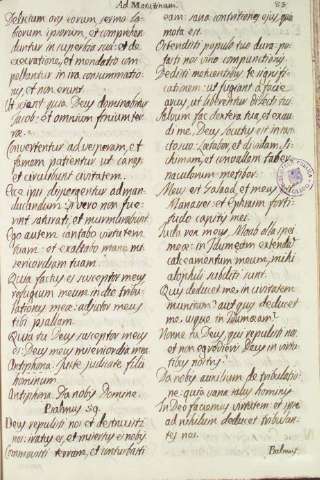 Ad Matutinum.
83
Delictum oris eorum sermo la-
biorum ipsorum, et comprehen
dantur in superbia sua: et de
execratione, et mendatio com
pellantur in ira consummatio
nis, et non erunt.
Et sciant quia Deus dominabitur
Jacob: et omnium finium ter
ræ.
Convertentur ad vesperam, et
famem patientur ut canes
et circuibunt civitatem.
Ipsi dispergentur ad man
ducandum: si vero non fue
rint saturati, et murmurabunt
Ego autem cantabo virtutem
tuam: et exaltabo mane mi
sericordiam tuam.
Quia factus es susceptor meus
refugium meum in die tribu-
lationis meæ: adjutor meus
tibi psallam.
Quia tu Deus susceptor meus
es: Deus meus misericordia mea
Antiphona. Juste judicate filii
hominum.
Antiphona. Da nobis Domine.
Psalmus 59.
Deus repulisti nos et destruxisti
nos: iratus es, et misertus es nobis
Commovisti terram, et conturbasti
eam: sana contritiones ejus, quia
mota est.
Ostendisti populo tuo dura: po-
tasti nos vino compunctionis.
Dedisti metuentibus te signifi-
cationem: ut fugiant à facie
arcus, ut liberentur dilecti tui.
Salvum fac dextera tua, et exau
di me, Deus locutus est in san
cto suo: lætabor, et dividam Si-
chimam, et convallem taber
naculorum metibor.
Meus est Galaad, et meus est
Manasses: et Ephraim forti-
tudo capitis mei.
Juda rex meus, Moab olla spei
meæ: in Idumæam extendam
calceamentum meum, mihi
alophili subditi sunt.
Quis deducet me in civitatem
munitam? aut quis deducet
me usque in Idumæam?
Nonne tu Deus, qui repulisti nos:
et non egredieris Deus in virtu
tibus nostris?
Da nobis auxilium de tribulatio
ne: quia vana salus hominis
In Deo faciemus virtutem: et ipse
ad nihilum deducet tribulan
tes nos.
Psalmus